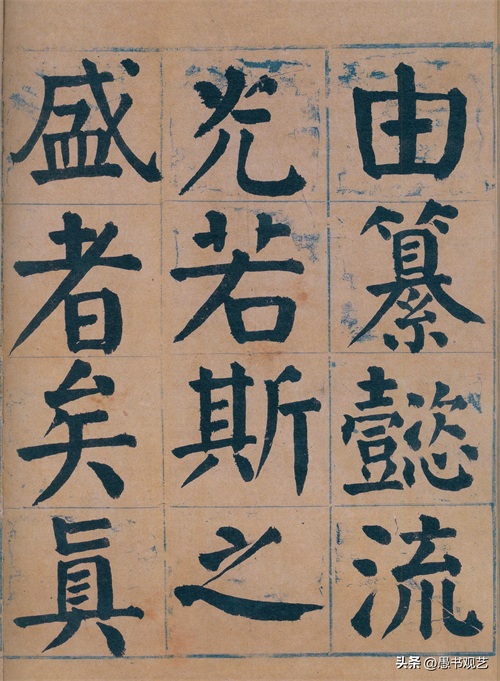 由纂懿流
光若斯之
盛者矣真
头条 @愚书观艺